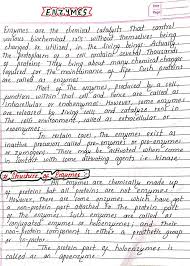 ENZYMES
Enzymes are the chemical catalysts that control
various biochemical without themselves being
changed or utilised in the living beings. Actually
the protoplasm of a cell contains several thousands
or proteins. They bring about many chemical changes
required for the maintenance of life. Such proteins
are called as enzymes.
Most of the enzymes, produced by a cell,
function within that cell. These are called
intracellular or endoenzymes. However, some enzymes
are released by living cells and catalyse in
the environment, called as extracellular or
exoenzymes.
In certain cases, the enzymes exist as
inactive precursor called pro-enzymes or pre-enzymes
or zymogens. They may be activated when come
in contact with some activating agents i.e. kinase.
Structure of Enzymes :
All enzymes are chemically made up
of protein but all proteins are not enzymes.
However, there are some enzymes which have got
a non-protein part attached to the protein part
of the enzymes. Such enzymes are called as
conjugated enzymes or holoenzymes; and their
non-protein component is either a prosthetic group
or co-factor.
The protein part of holoenzymes is
called as an apoenzyme.